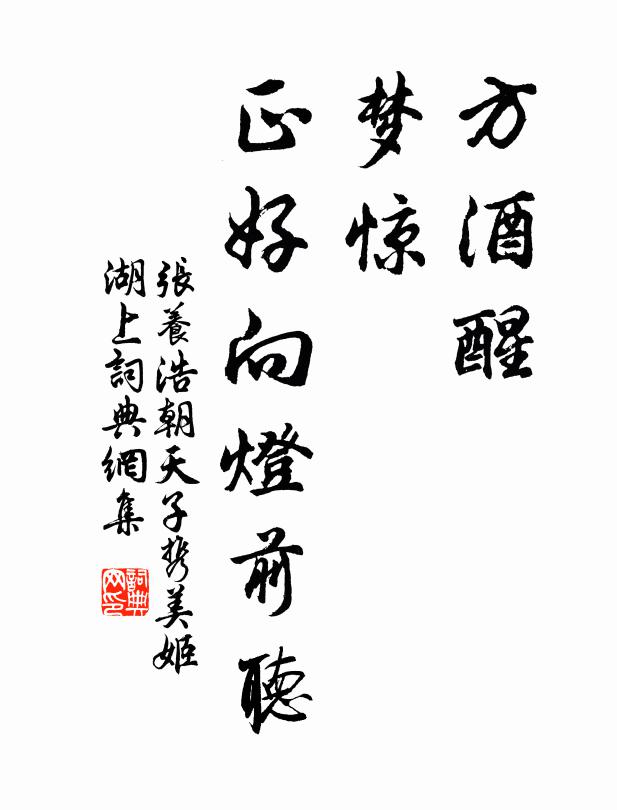 方酒醒
梦惊
正好向燈前聽
張養浩朝天子携美姬
湖上詞典網集
詞典
网印